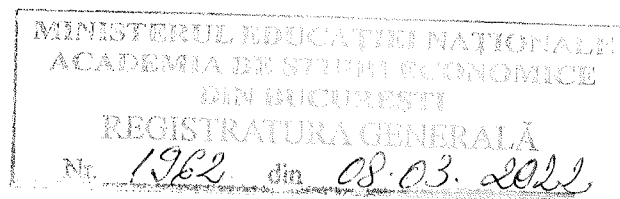 MINISTERUL EDUCAȚIEI NAȚIONALE
ACADEMIA DE STUDII ECONOMICE
DIN BUCUREȘTI
REGISTRATURA GENERALĂ
Nr. 1962 din 08.03.2022